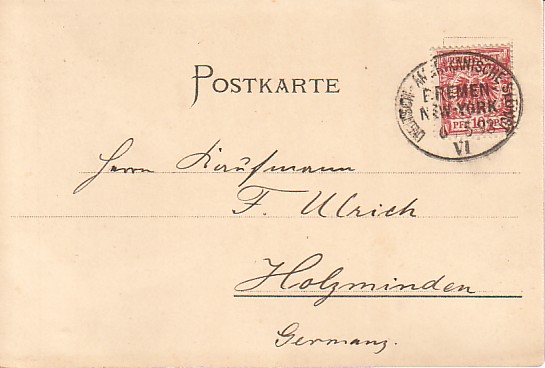 POSTKARTE
DEUTSCH-AMERIKANISCHE SEEPOST
BREMEN
NEW-YORK
VI
PF 10 PF
Herrn Kaufmann
F. Ulrich
Holzminden
Germany.